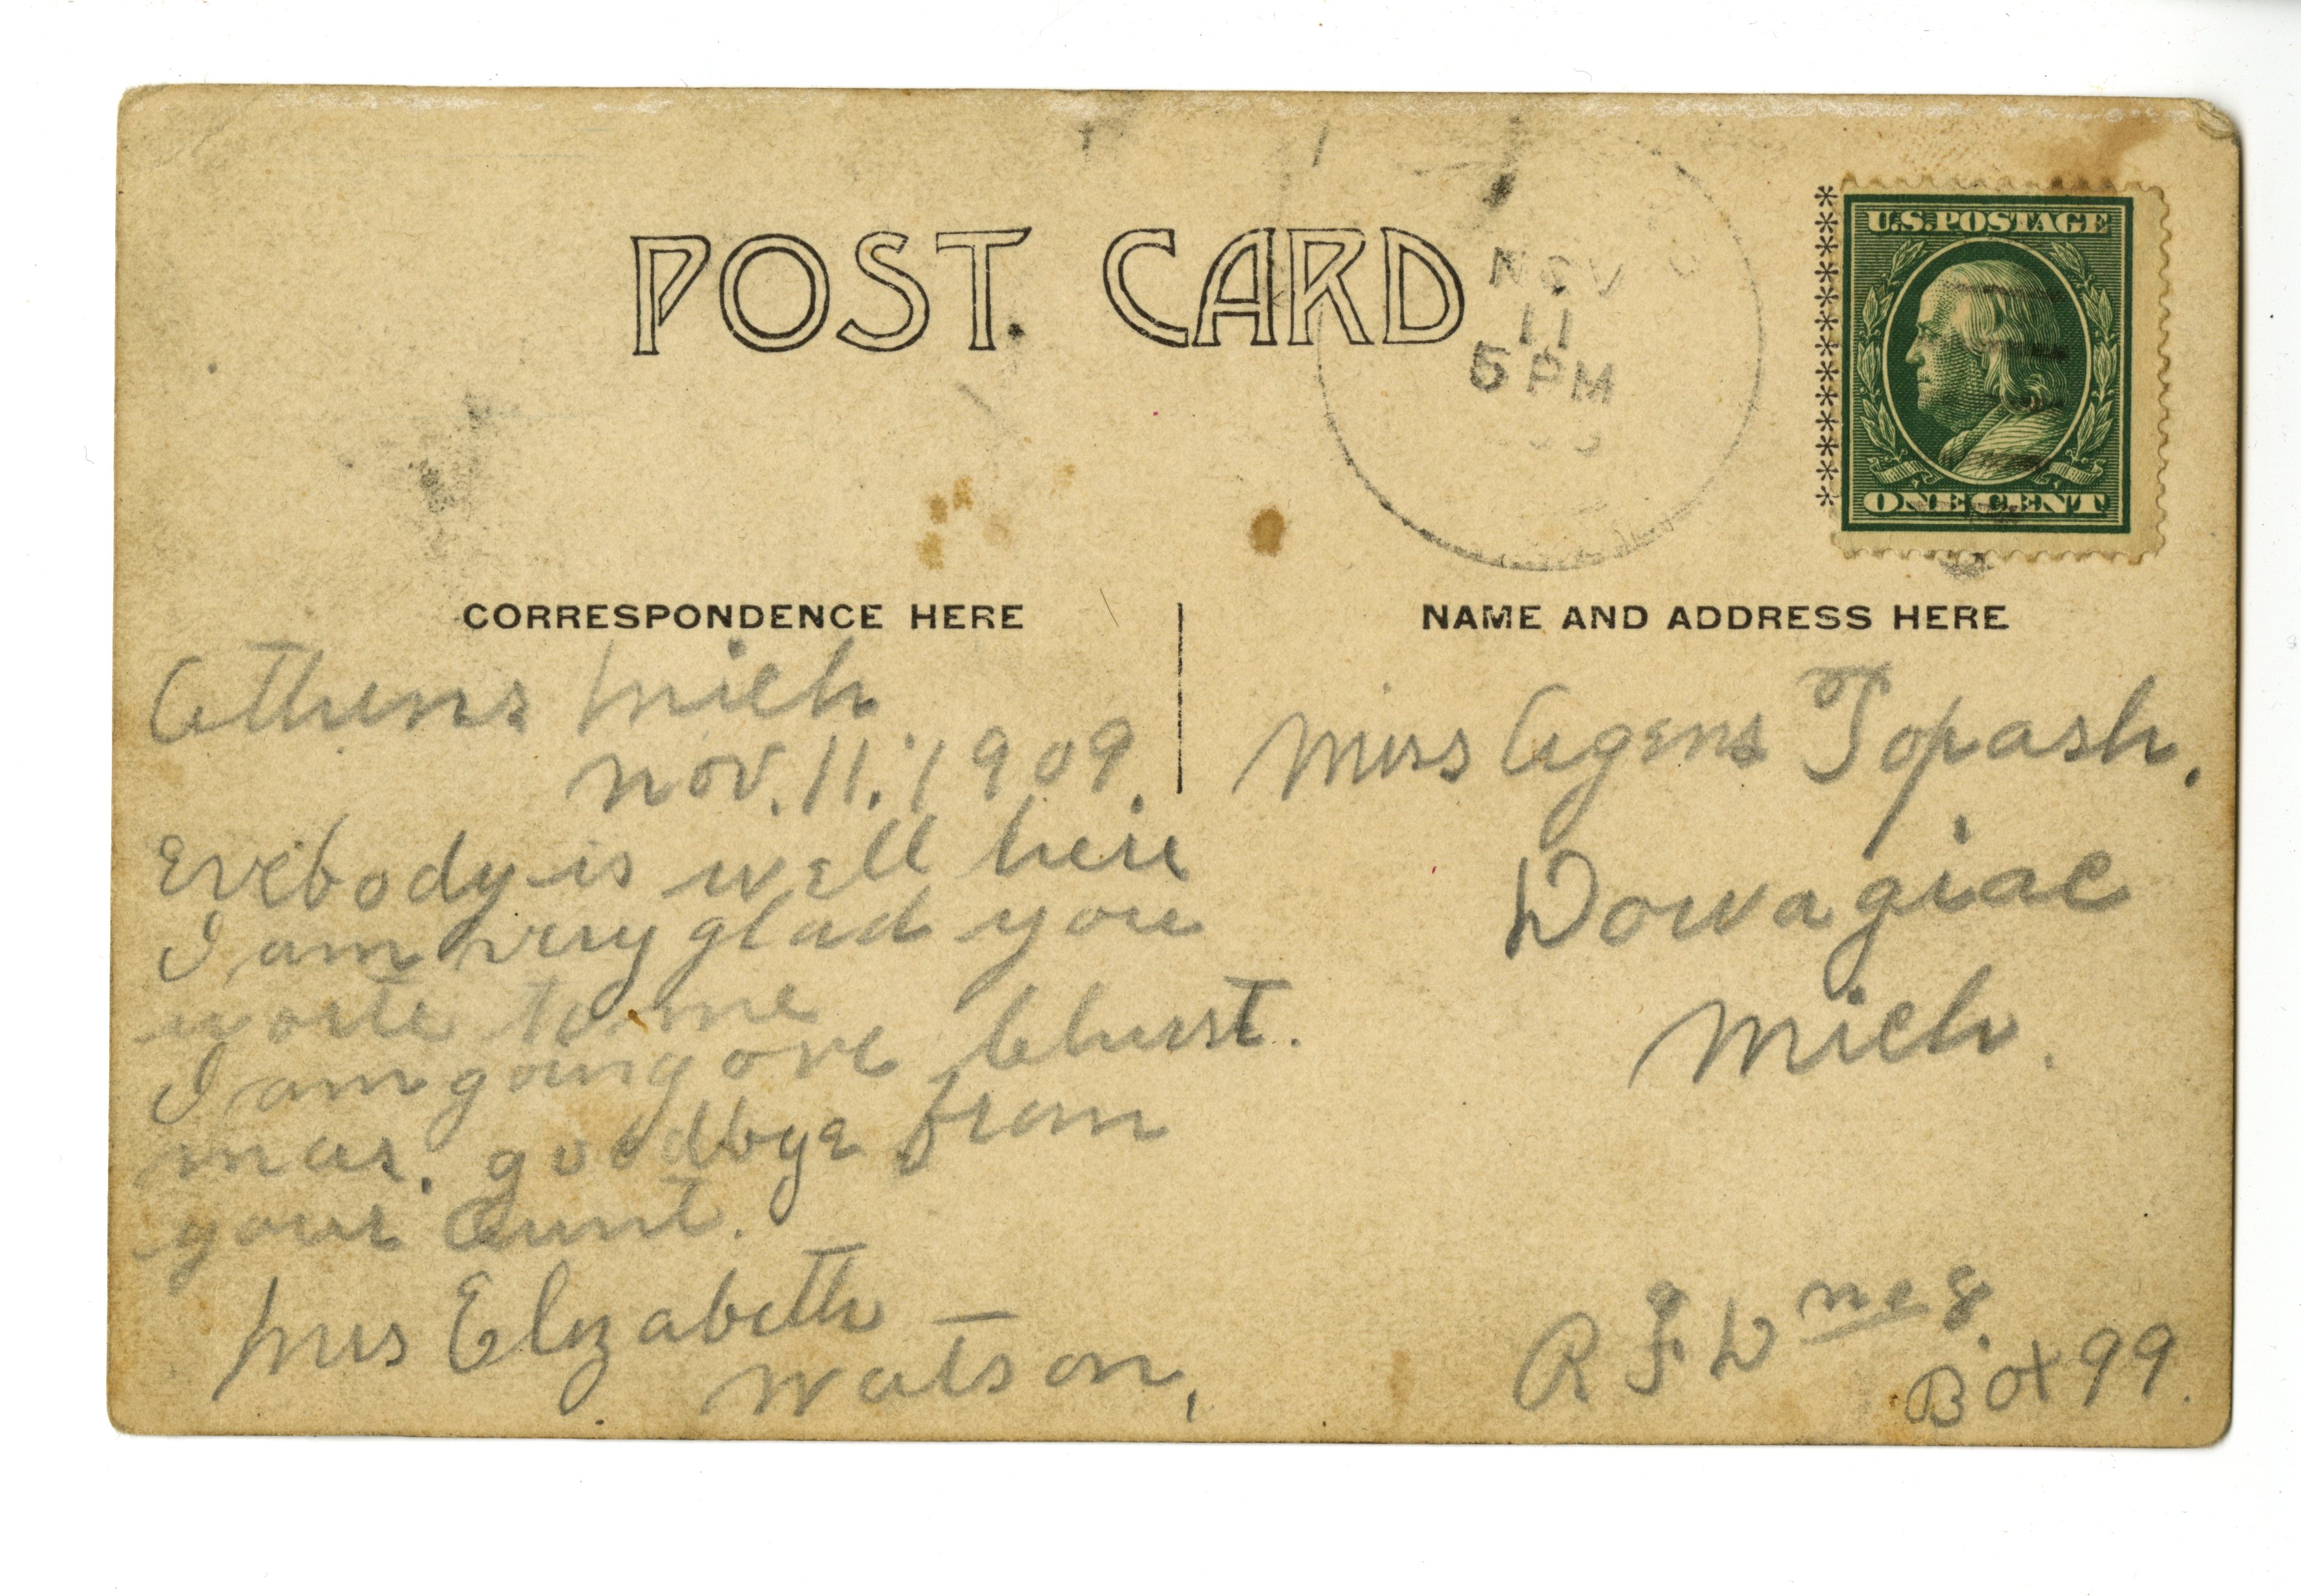 POST CARD
NOV
11
5 PM
U.S. POSTAGE
ONE CENT
CORRESPONDENCE HERE
NAME AND ADDRESS HERE
Athens Mich
Nov. 11. 1909.
Evebody is well here
I am very glad you
worte to me
I am going ove Churst.
mas. goodbye from
your Aunt.
Mrs Elizabeth
Watson,
Miss Agens Topash.
Dowagiac
Mich.
R F D no 8.
Box 99.